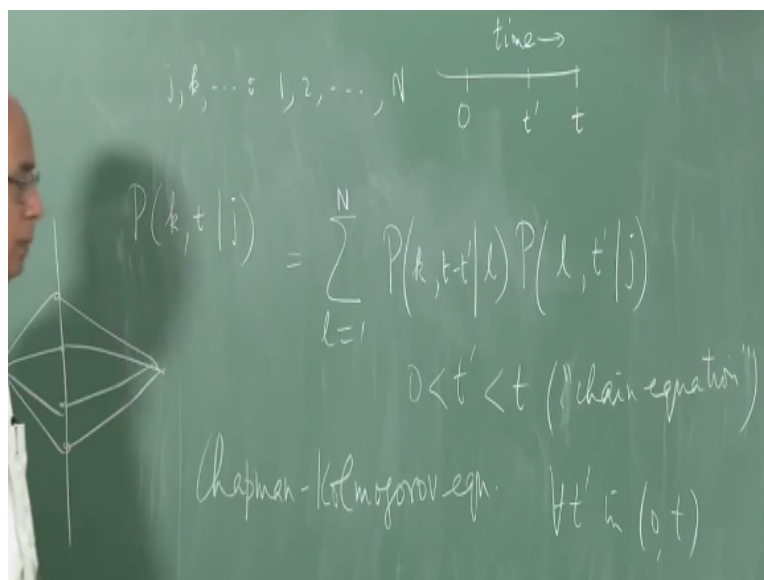 time→
j, k, ... : 1, 2, ..., N
0 t' t
P(k, t | j) = N ∑ l=1 P(k, t-t' | l) P(l, t' | j)
0 < t' < t ("chain equation")
Chapman-Kolmogorov eqn. ∀t' in (0, t)